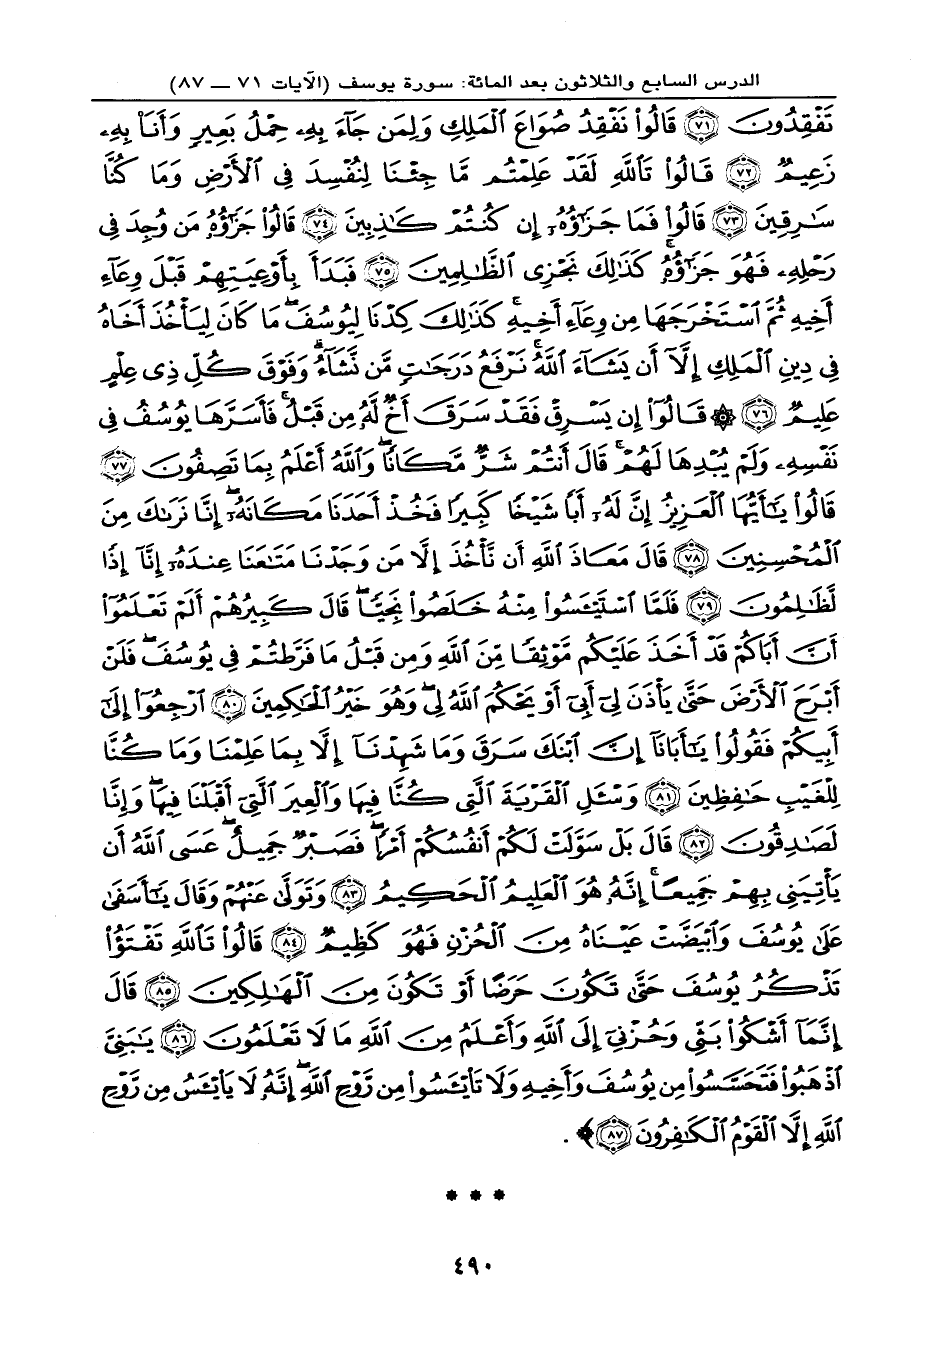 الدرس السابع والثلاثون بعد المائة: سورة يوسف (الآيات ٧١ ــ ٨٧)
تَفْقِدُونَ ﴿٧١﴾ قَالُوا۟ نَفْقِدُ صُوَاعَ ٱلْمَلِكِ وَلِمَن جَآءَ بِهِۦ حِمْلُ بَعِيرٍ وَأَنَا۠ بِهِۦ
زَعِيمٌ ﴿٧٢﴾ قَالُوا۟ تَٱللَّهِ لَقَدْ عَلِمْتُم مَّا جِئْنَا لِنُفْسِدَ فِى ٱلْأَرْضِ وَمَا كُنَّا
سَٰرِقِينَ ﴿٧٣﴾ قَالُوا۟ فَمَا جَزَٰٓؤُهُۥٓ إِن كُنتُمْ كَٰذِبِينَ ﴿٧٤﴾ قَالُوا۟ جَزَٰٓؤُهُۥ مَن وُجِدَ فِى
رَحْلِهِۦ فَهُوَ جَزَٰٓؤُهُۥ ۚ كَذَٰلِكَ نَجْزِى ٱلظَّٰلِمِينَ ﴿٧٥﴾ فَبَدَأَ بِأَوْعِيَتِهِمْ قَبْلَ وِعَآءِ
أَخِيهِ ثُمَّ ٱسْتَخْرَجَهَا مِن وِعَآءِ أَخِيهِ ۚ كَذَٰلِكَ كِدْنَا لِيُوسُفَ ۖ مَا كَانَ لِيَأْخُذَ أَخَاهُ
فِى دِينِ ٱلْمَلِكِ إِلَّآ أَن يَشَآءَ ٱللَّهُ ۚ نَرْفَعُ دَرَجَٰتٍ مَّن نَّشَآءُ ۗ وَفَوْقَ كُلِّ ذِى عِلْمٍ
عَلِيمٌ ﴿٧٦﴾ ۞ قَالُوٓا۟ إِن يَسْرِقْ فَقَدْ سَرَقَ أَخٌ لَّهُۥ مِن قَبْلُ ۚ فَأَسَرَّهَا يُوسُفُ فِى
نَفْسِهِۦ وَلَمْ يُبْدِهَا لَهُمْ ۚ قَالَ أَنتُمْ شَرٌّ مَّكَانًا ۖ وَٱللَّهُ أَعْلَمُ بِمَا تَصِفُونَ ﴿٧٧﴾
قَالُوا۟ يَٰٓأَيُّهَا ٱلْعَزِيزُ إِنَّ لَهُۥٓ أَبًا شَيْخًا كَبِيرًا فَخُذْ أَحَدَنَا مَكَانَهُۥٓ ۖ إِنَّا نَرَىٰكَ مِنَ
ٱلْمُحْسِنِينَ ﴿٧٨﴾ قَالَ مَعَاذَ ٱللَّهِ أَن نَّأْخُذَ إِلَّا مَن وَجَدْنَا مَتَٰعَنَا عِندَهُۥٓ إِنَّآ إِذًا
لَّظَٰلِمُونَ ﴿٧٩﴾ فَلَمَّا ٱسْتَيْـَٔسُوا۟ مِنْهُ خَلَصُوا۟ نَجِيًّا ۖ قَالَ كَبِيرُهُمْ أَلَمْ تَعْلَمُوٓا۟
أَنَّ أَبَاكُمْ قَدْ أَخَذَ عَلَيْكُم مَّوْثِقًا مِّنَ ٱللَّهِ وَمِن قَبْلُ مَا فَرَّطتُمْ فِى يُوسُفَ ۖ فَلَنْ
أَبْرَحَ ٱلْأَرْضَ حَتَّىٰ يَأْذَنَ لِىٓ أَبِىٓ أَوْ يَحْكُمَ ٱللَّهُ لِى ۖ وَهُوَ خَيْرُ ٱلْحَٰكِمِينَ ﴿٨٠﴾ ٱرْجِعُوٓا۟ إِلَىٰٓ
أَبِيكُمْ فَقُولُوا۟ يَٰٓأَبَانَآ إِنَّ ٱبْنَكَ سَرَقَ وَمَا شَهِدْنَآ إِلَّا بِمَا عَلِمْنَا وَمَا كُنَّا
لِلْغَيْبِ حَٰفِظِينَ ﴿٨١﴾ وَسْـَٔلِ ٱلْقَرْيَةَ ٱلَّتِى كُنَّا فِيهَا وَٱلْعِيرَ ٱلَّتِىٓ أَقْبَلْنَا فِيهَا ۖ وَإِنَّا
لَصَٰدِقُونَ ﴿٨٢﴾ قَالَ بَلْ سَوَّلَتْ لَكُمْ أَنفُسُكُمْ أَمْرًا ۖ فَصَبْرٌ جَمِيلٌ ۖ عَسَى ٱللَّهُ أَن
يَأْتِيَنِى بِهِمْ جَمِيعًا ۚ إِنَّهُۥ هُوَ ٱلْعَلِيمُ ٱلْحَكِيمُ ﴿٨٣﴾ وَتَوَلَّىٰ عَنْهُمْ وَقَالَ يَٰٓأَسَفَىٰ
عَلَىٰ يُوسُفَ وَٱبْيَضَّتْ عَيْنَاهُ مِنَ ٱلْحُزْنِ فَهُوَ كَظِيمٌ ﴿٨٤﴾ قَالُوا۟ تَٱللَّهِ تَفْتَؤُا۟
تَذْكُرُ يُوسُفَ حَتَّىٰ تَكُونَ حَرَضًا أَوْ تَكُونَ مِنَ ٱلْهَٰلِكِينَ ﴿٨٥﴾ قَالَ
إِنَّمَآ أَشْكُوا۟ بَثِّى وَحُزْنِىٓ إِلَى ٱللَّهِ وَأَعْلَمُ مِنَ ٱللَّهِ مَا لَا تَعْلَمُونَ ﴿٨٦﴾ يَٰبَنِىَّ
ٱذْهَبُوا۟ فَتَحَسَّسُوا۟ مِن يُوسُفَ وَأَخِيهِ وَلَا تَا۟يْـَٔسُوا۟ مِن رَّوْحِ ٱللَّهِ ۖ إِنَّهُۥ لَا يَا۟يْـَٔسُ مِن رَّوْحِ
ٱللَّهِ إِلَّا ٱلْقَوْمُ ٱلْكَٰفِرُونَ ﴿٨٧﴾﴾ .
* * *
٤٩٠